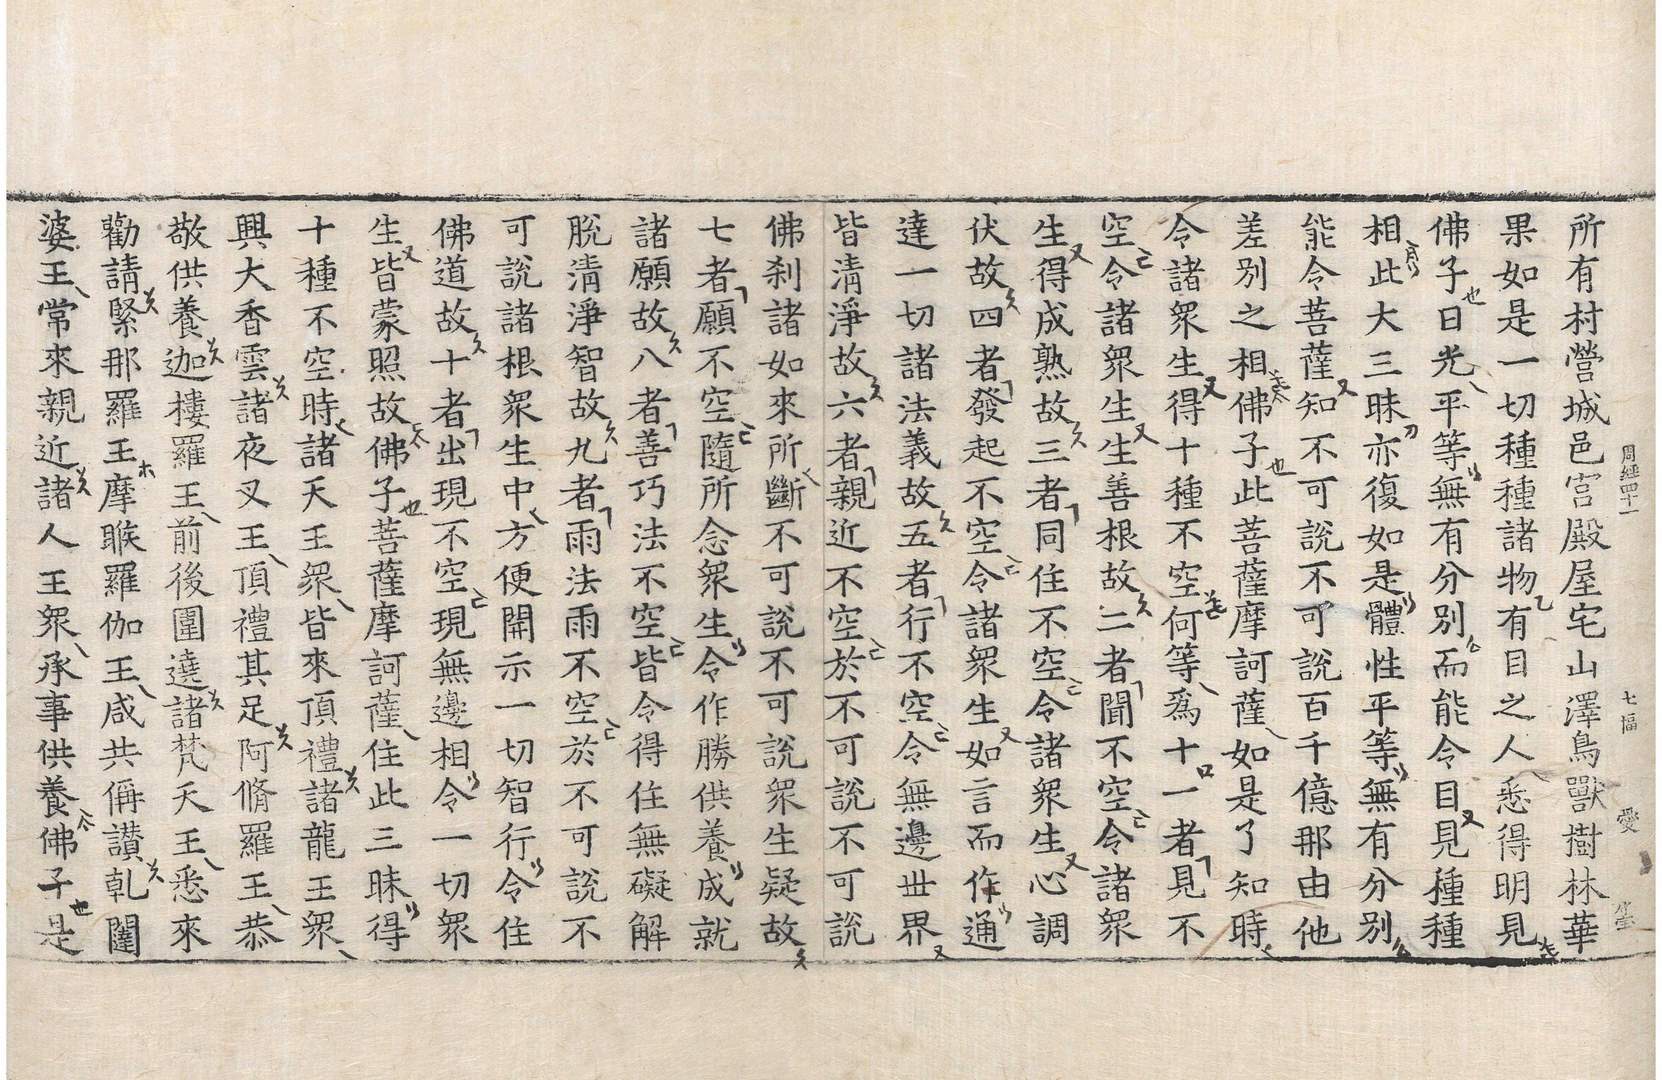 周經四十一 七幅 愛
所有村營城邑宮殿屋宅山澤鳥獸樹林華
果如是一切種種諸物有目之人悉得明見
佛子日光平等無有分別而能令目見種種
相此大三昧亦復如是體性平等無有分別
能令菩薩知不可說不可說百千億那由他
差別之相佛子此菩薩摩訶薩如是了知時
令諸衆生得十種不空何等爲十一者見不
空令諸衆生生善根故二者聞不空令諸衆
生得成熟故三者同住不空令諸衆生心調
伏故四者發起不空令諸衆生如言而作通
達一切諸法義故五者行不空令無邊世界
皆清淨故六者親近不空於不可說不可說
佛剎諸如來所斷不可說不可說衆生疑故
七者願不空隨所念衆生令作勝供養成就
諸願故八者善巧法不空皆令得住無礙解
脫清淨智故九者雨法雨不空於不可說不
可說諸根衆生中方便開示一切智行令住
佛道故十者出現不空現無邊相令一切衆
生皆蒙照故佛子菩薩摩訶薩住此三昧得
十種不空時諸天王衆皆來頂禮諸龍王衆
興大香雲諸夜叉王頂禮其足阿脩羅王恭
敬供養迦樓羅王前後圍遶諸梵天王悉來
勸請緊那羅王摩睺羅伽王咸共稱讃乹闥
婆王常來親近諸人王衆承事供養佛子是